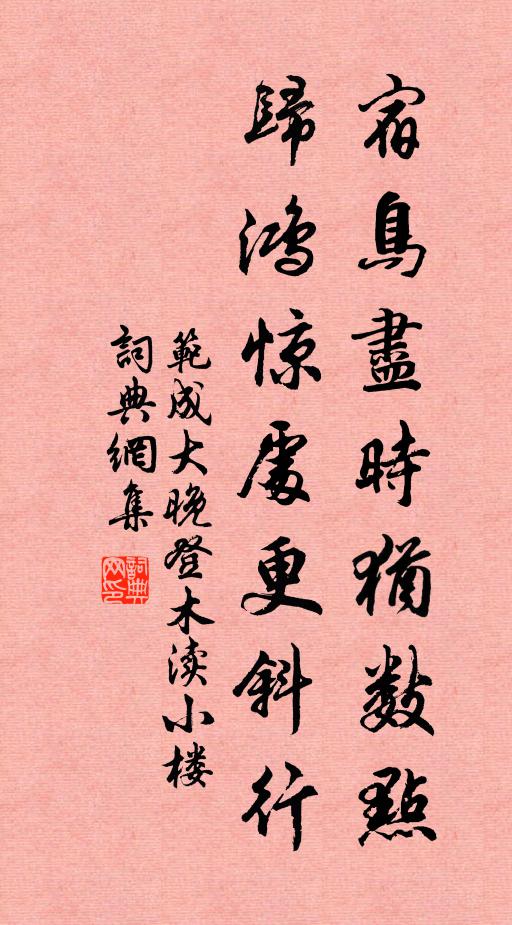 宿鳥盡時猶數點
歸鴻惊處更斜行
範成大晚登木渎小楼
詞典網集
詞典网印